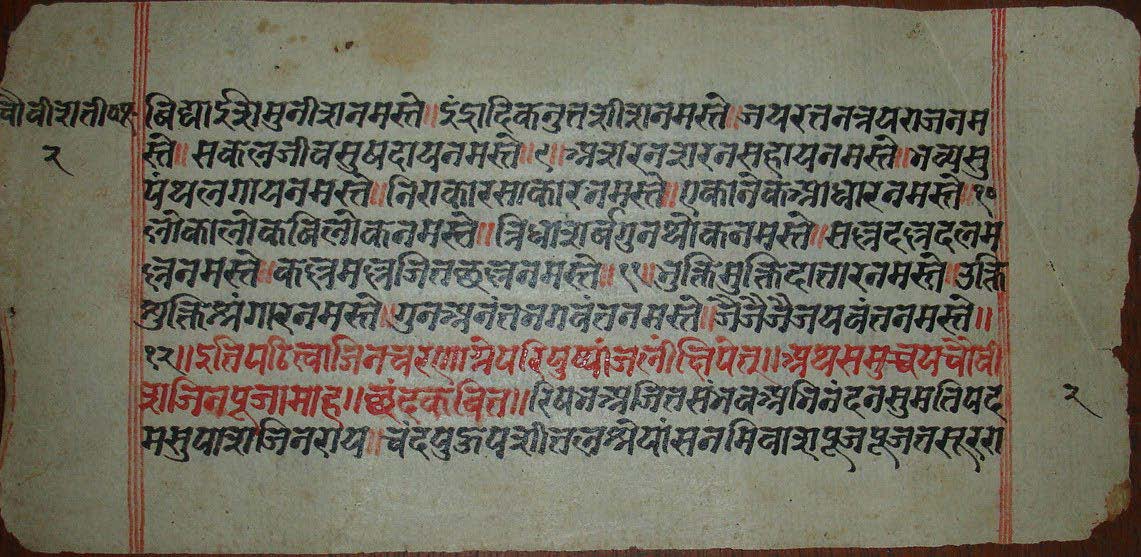 चौवीशती पूजा
२
विद्याईशमुनीशनमस्ते॥ इंद्रादिकनुतशीशनमस्ते॥ जयरतनत्रयराजनम
स्ते॥ सकलजीवसुषदायनमस्ते॥९॥ अशरनशरनसहायनमस्ते॥ भव्यसु
पंथलगायनमस्ते॥ निराकारसाकारनमस्ते॥ एकानेकआधारनमस्ते॥१०
लोकालोकविलोकनमस्ते॥ त्रिधाशर्वगुनथोकनमस्ते॥ सल्लदल्लदलम
ल्लनमस्ते॥ कल्लमल्लजितछल्लनमस्ते॥११॥ भुक्तिमुक्तिदातारनमस्ते॥ उक्ति
शुक्तिशृंगारनमस्ते॥ गुनअनंतभगवंतनमस्ते॥ जैजैजैजयवंतनमस्ते॥
१२॥ इतिपठित्वाजिनचरणाग्रेपरिपुष्पांजलींक्षिपेत्॥ अथसमुच्चयचौवी
शजिनपूजामाह॥ छंदकवित॥ रिषभअजितसंभवअभिनंदनसुमतिपद
मसुपाशजिनराय॥ चंदपुहुपशीतलश्रेयांसनमिवाशपूजपूजतसूररा
२